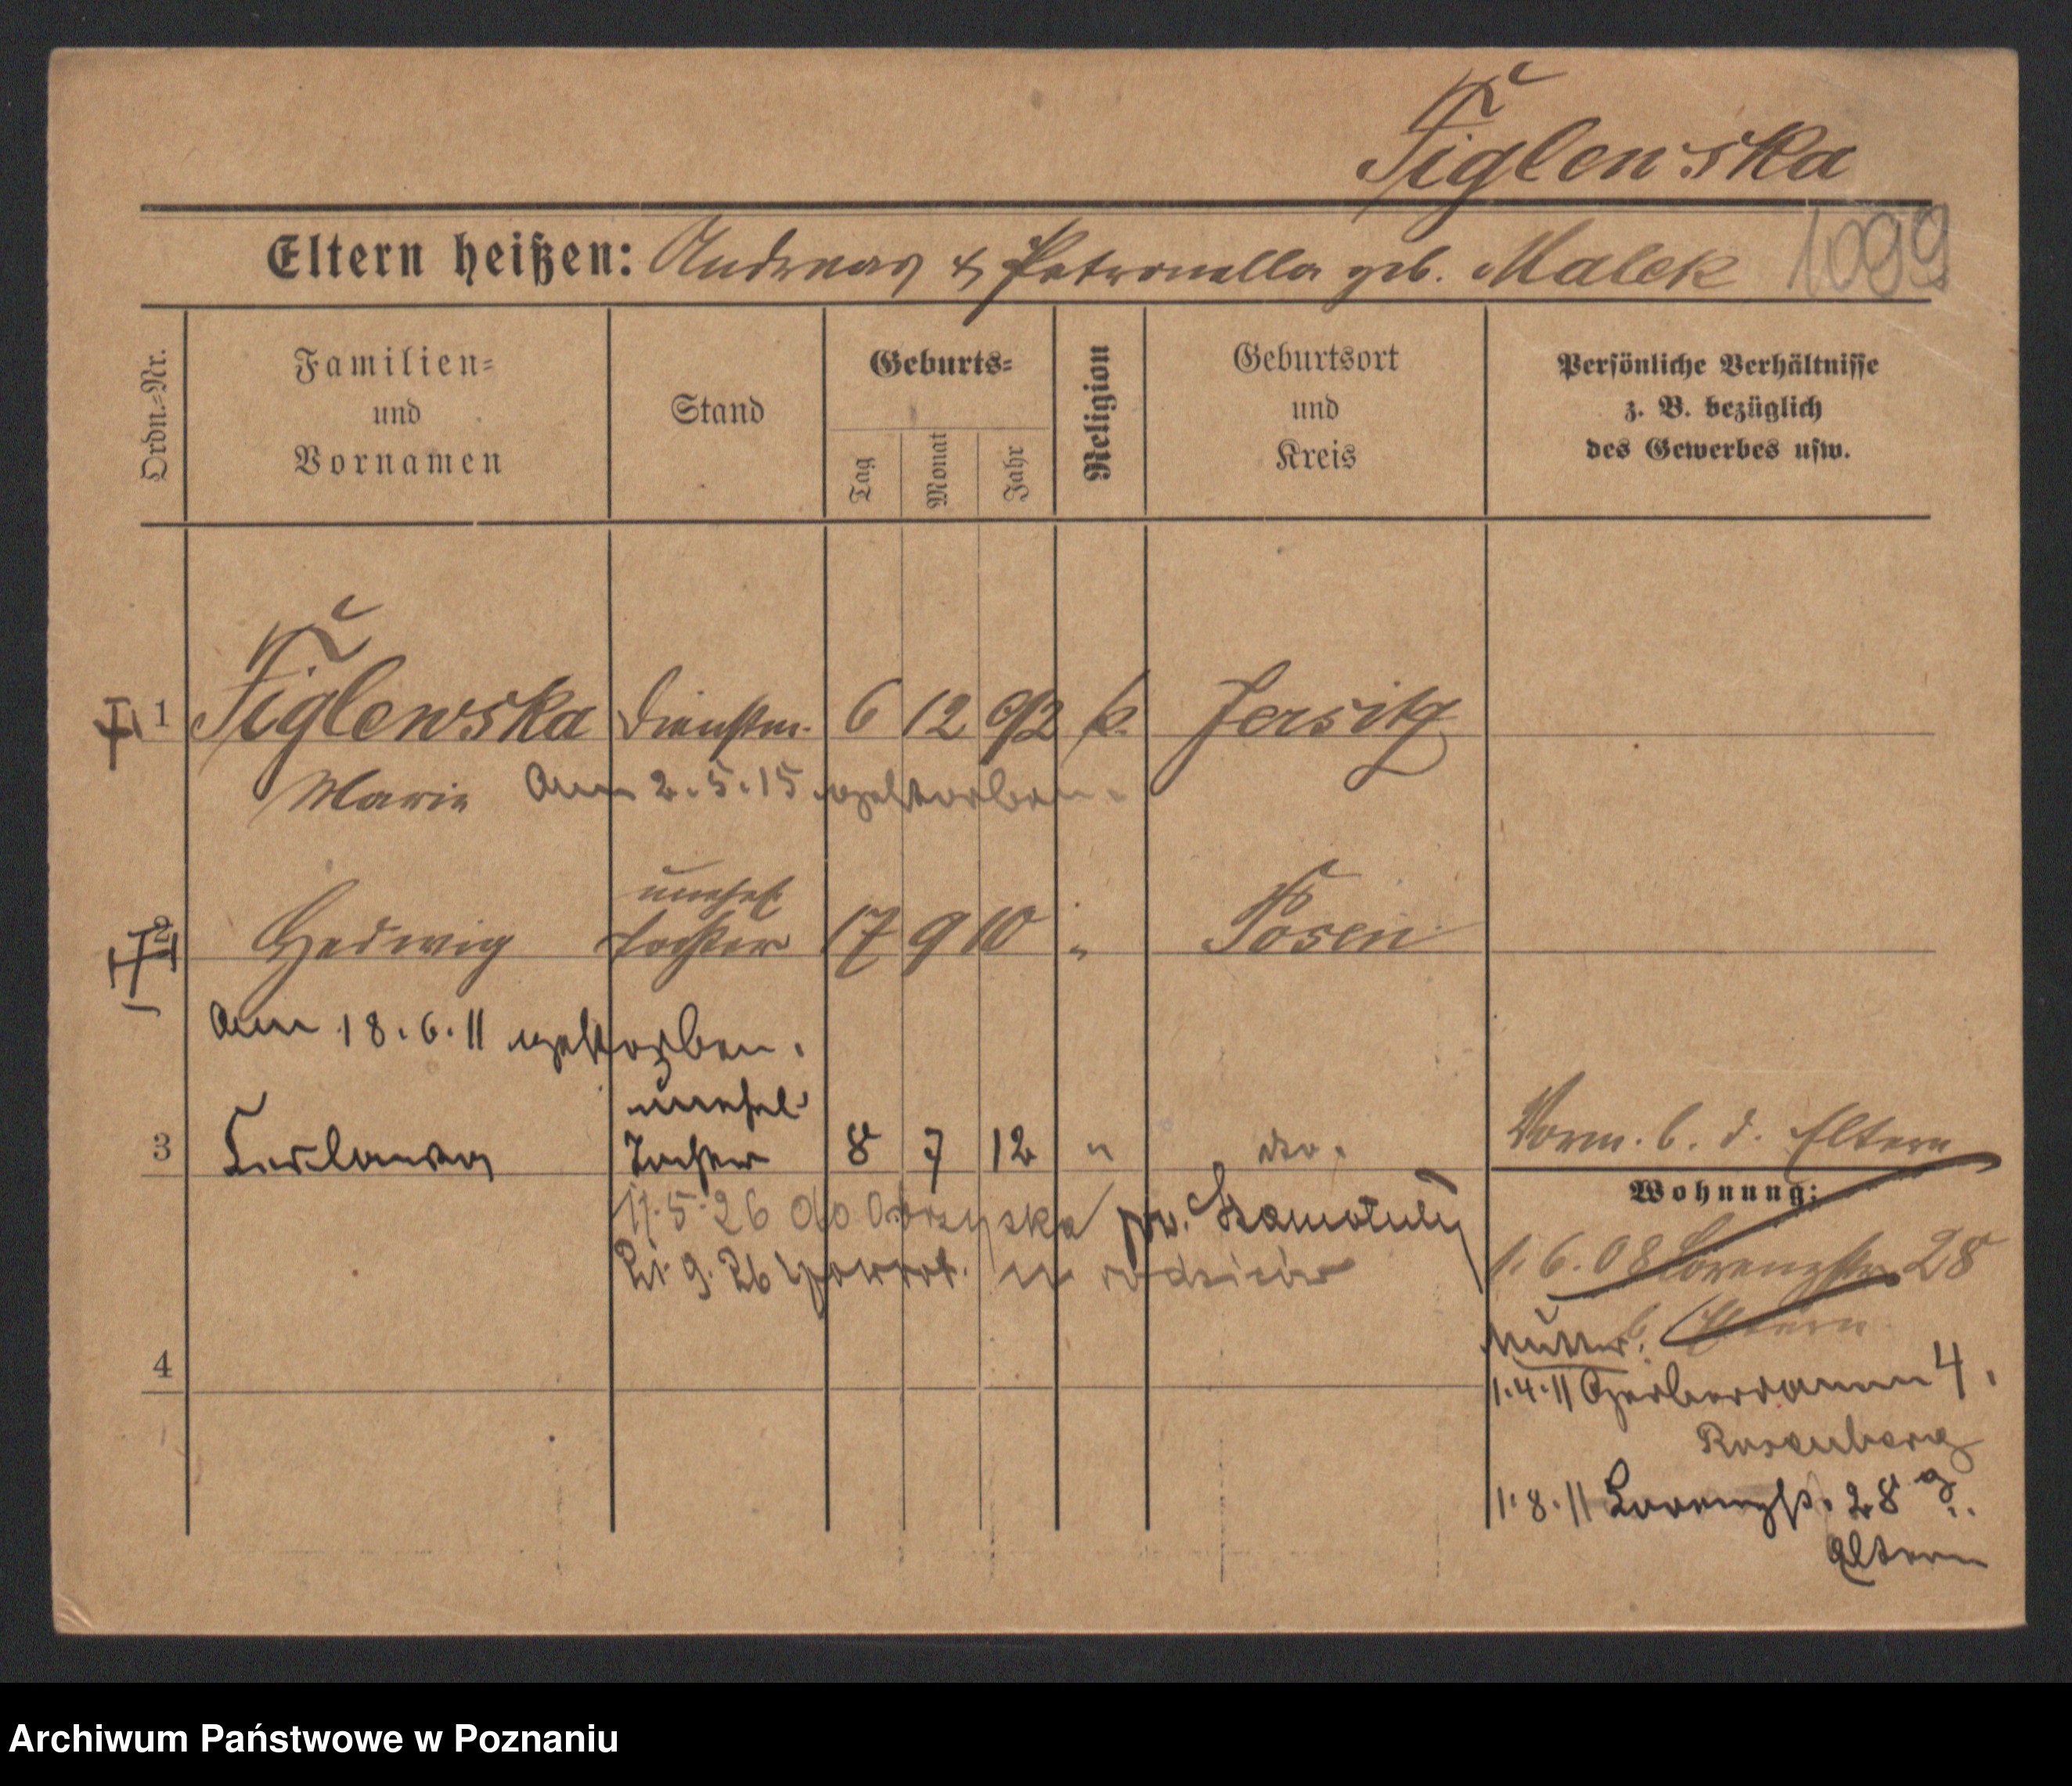 Figlewska
Eltern heißen: Andreas & Petronella geb. Malek 1099
Ordn.=Nr.
Familien=
und
Vornamen
Stand
Geburts=
Tag
Monat
Jahr
Religion
Geburtsort
und
Kreis
Persönliche Verhältnisse
z. B. bezüglich
des Gewerbes usw.
1 Figlewska Dienstm. 6 12 92 k. Jersitz
Marie Am 2.5.15 gestorben.
unehel.
2 Hedwig Tochter 17 9 10 " Posen
Am 18.6.11 gestorben.
unehel.
3 Tochter 8 7 12 " do.
Vorm. b. d. Eltern
Wohnung:
17.5.26 do Obrzycka pw. Szamotuły
21.9.26 powrot. u rodziców
1.6.08 Lorenzstr. 28
b. Eltern
Mutter:
4
1.4.11 Gerberdamm 4.
Rosenberg
1.8.11 Lorenzstr. 28
Eltern
Archiwum Państwowe w Poznaniu